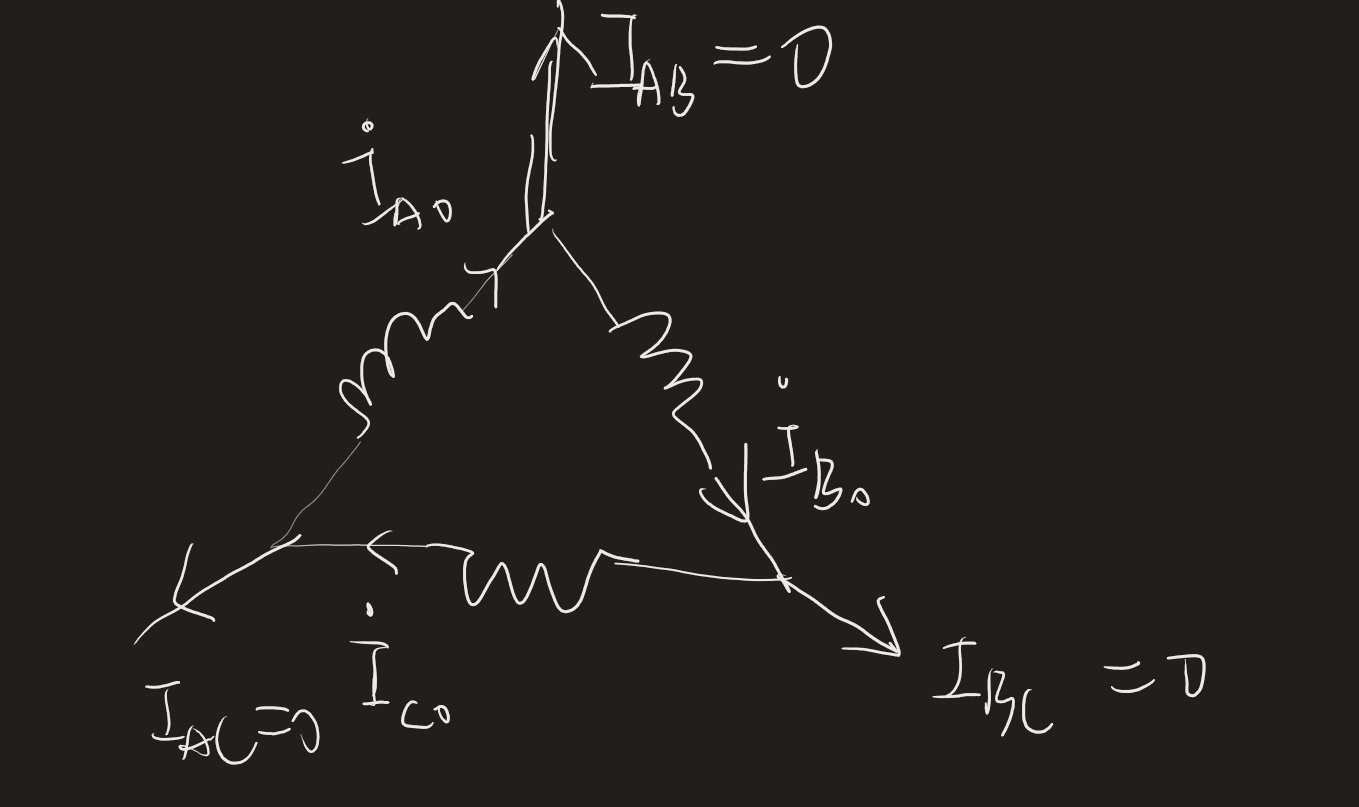 I_AB = 0
İ_A0
İ_B0
İ_C0
I_BC = 0
I_AC = 0